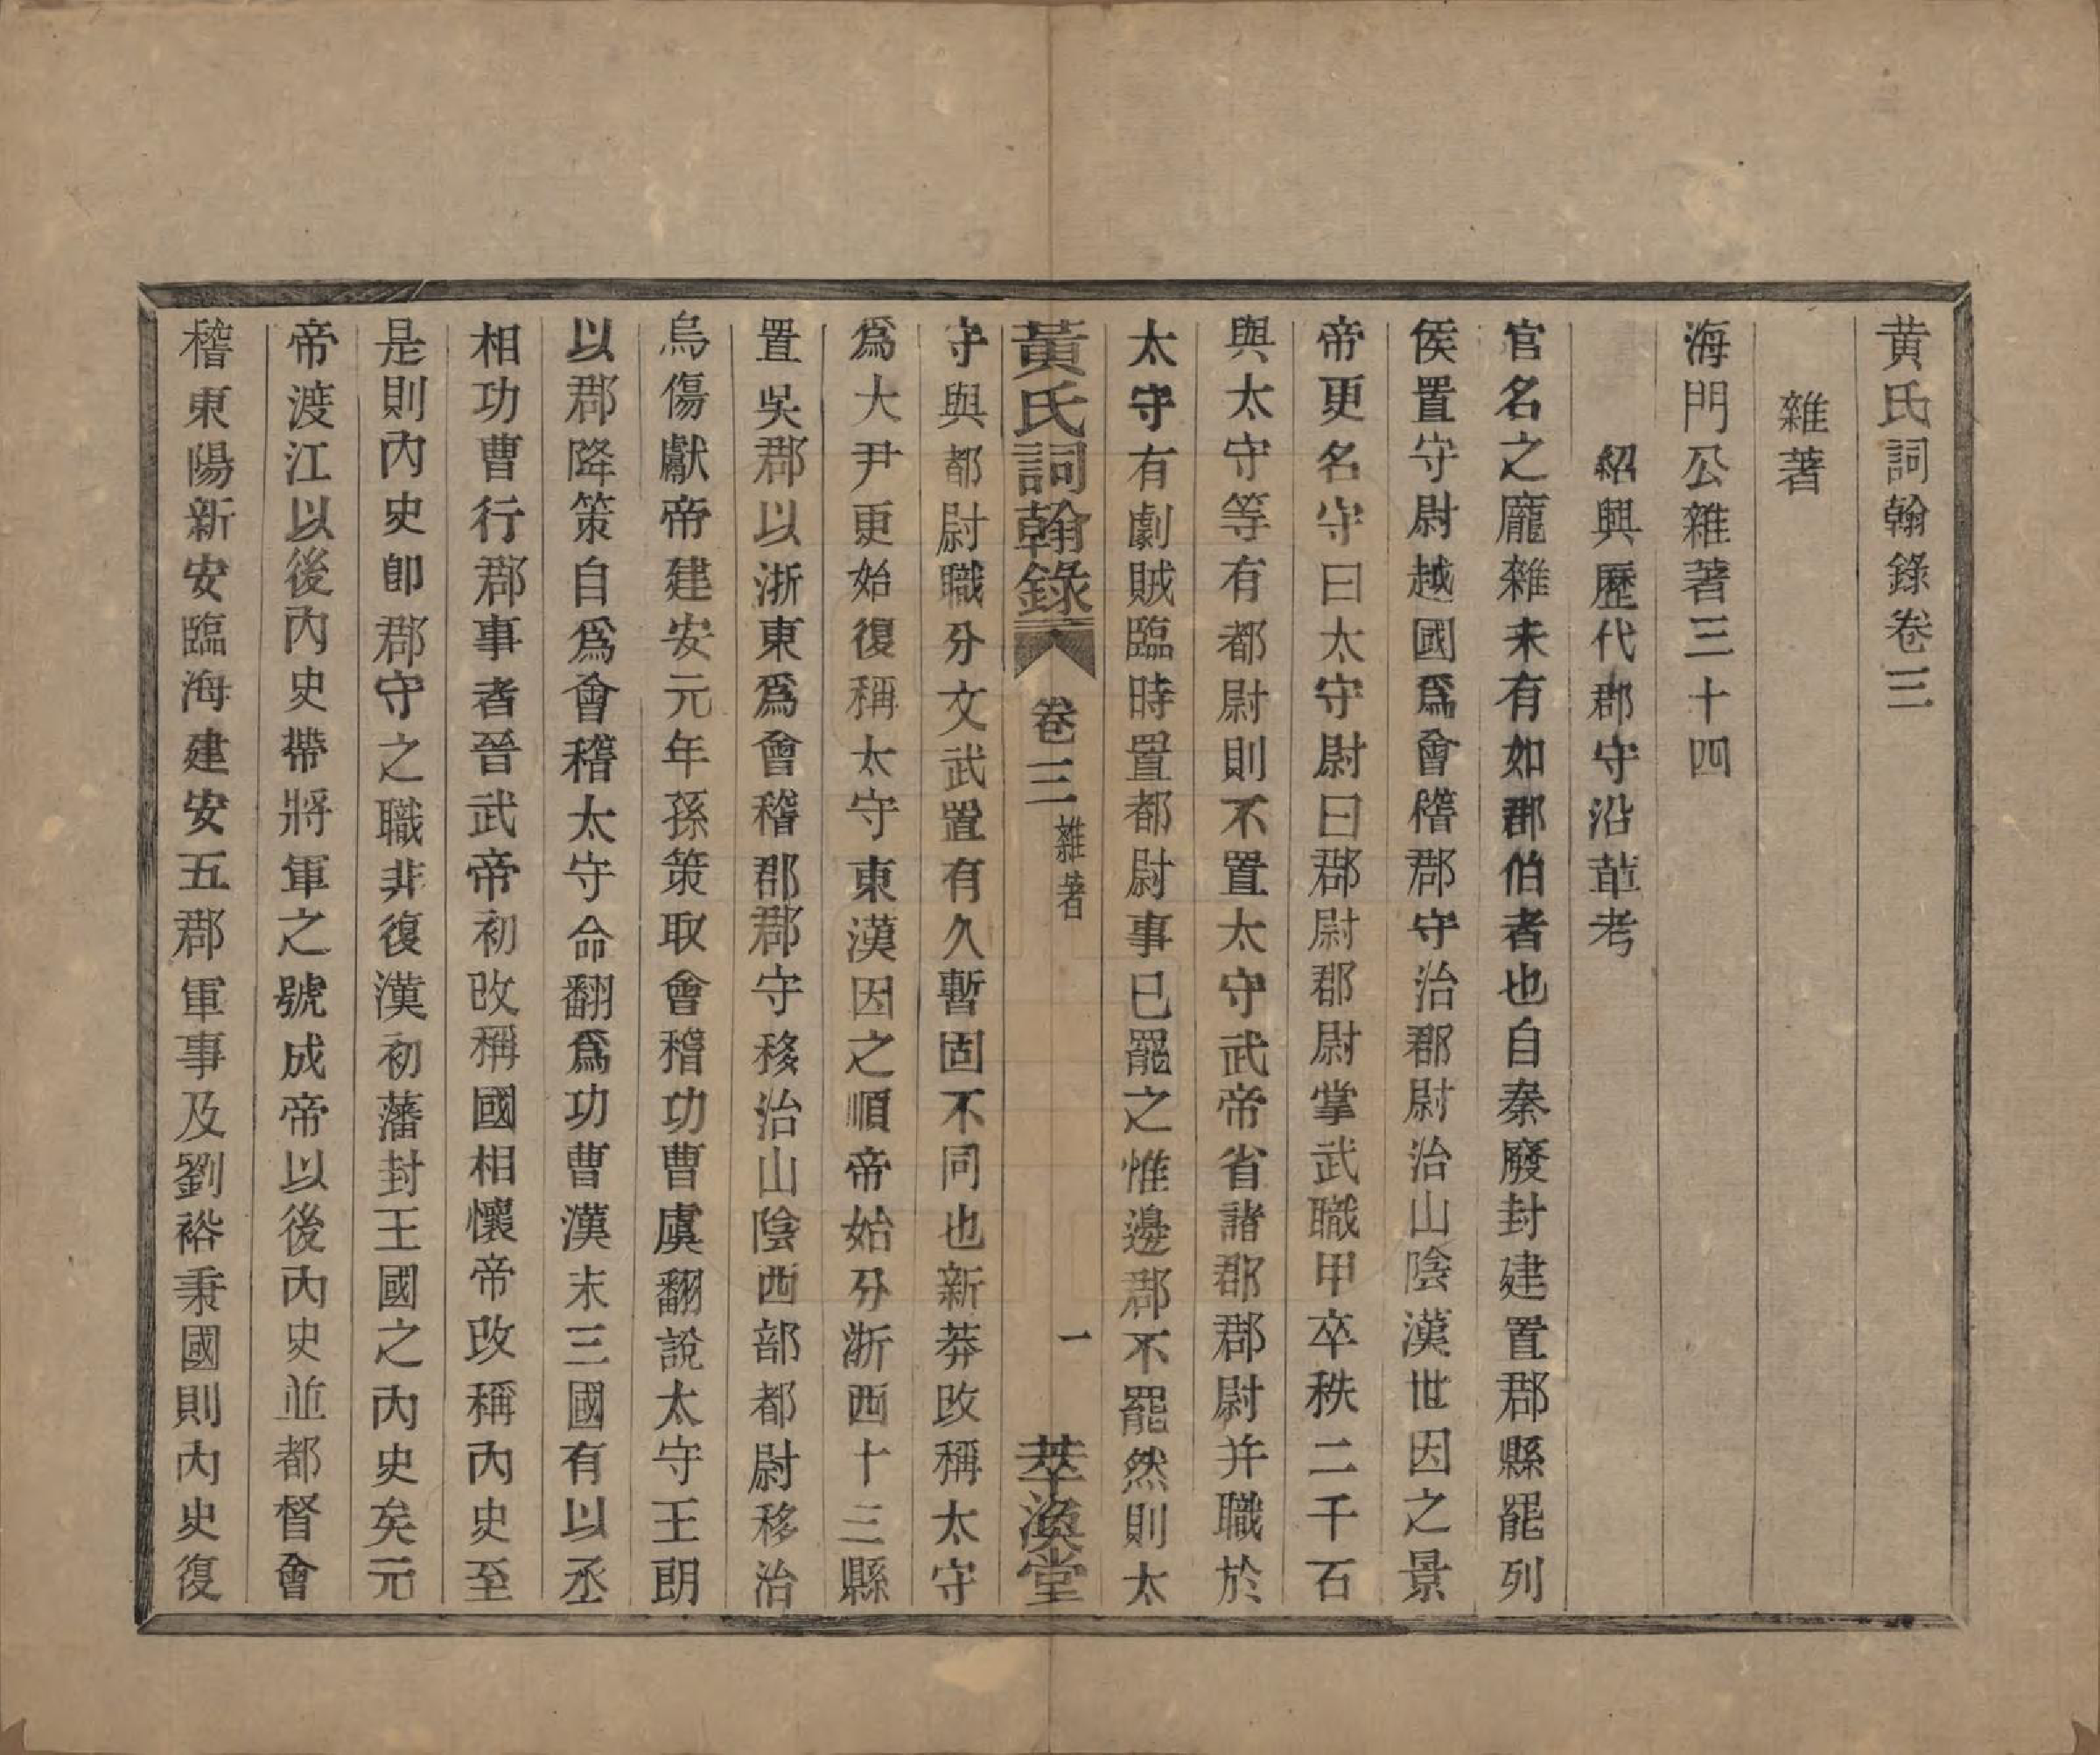 黄氏詞翰錄卷三
雜著
海門公雜著三十四
紹興歷代郡守沿革考
官名之龐雜未有如郡伯者也自秦廢封建置郡縣罷列
侯置守尉越國爲會稽郡守治郡尉治山陰漢世因之景
帝更名守曰太守尉曰郡尉郡尉掌武職甲卒秩二千石
與太守等有都尉則不置太守武帝省諸郡郡尉并職於
太守有劇賊臨時置都尉事已罷之惟邊郡不罷然則太
黃氏詞翰錄 卷三 雜著 一 萃渙堂
守與都尉職分文武置有久暫固不同也新莽改稱太守
爲大尹更始復稱太守東漢因之順帝始分浙西十三縣
置吳郡以浙東爲會稽郡郡守移治山陰西部都尉移治
烏傷獻帝建安元年孫策取會稽功曹虞翻說太守王朗
以郡降策自爲會稽太守命翻爲功曹漢末三國有以丞
相功曹行郡事者晉武帝初改稱國相懷帝改稱內史至
是則內史卽郡守之職非復漢初藩封王國之內史矣元
帝渡江以後內史帶將軍之號成帝以後內史並都督會
稽東陽新安臨海建安五郡軍事及劉裕秉國則內史復